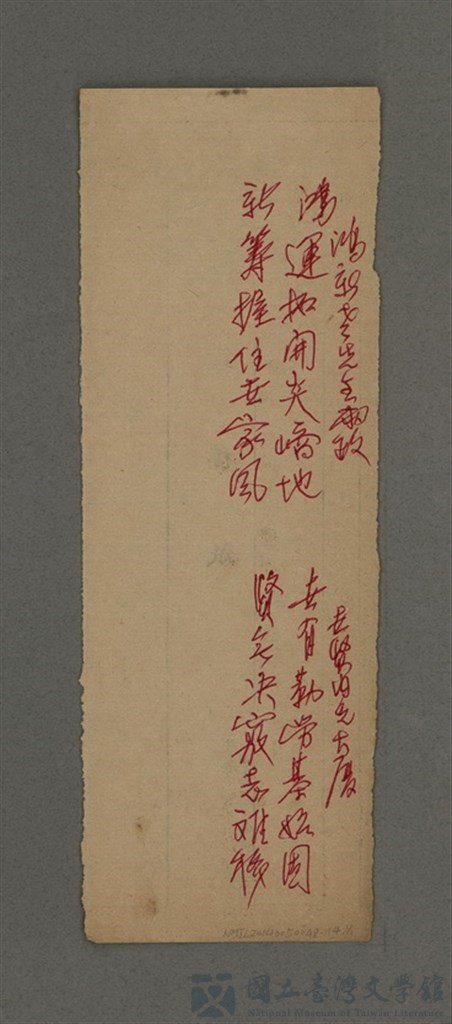 鴻新老先生雅政
鴻運拓開尖峰地
新籌握住世家風
世賢內兄大廈
世有勤勞基始固
賢無決竅志難移
NMTL20110050048
國立臺灣文學館
National Museum of Taiwan Literature